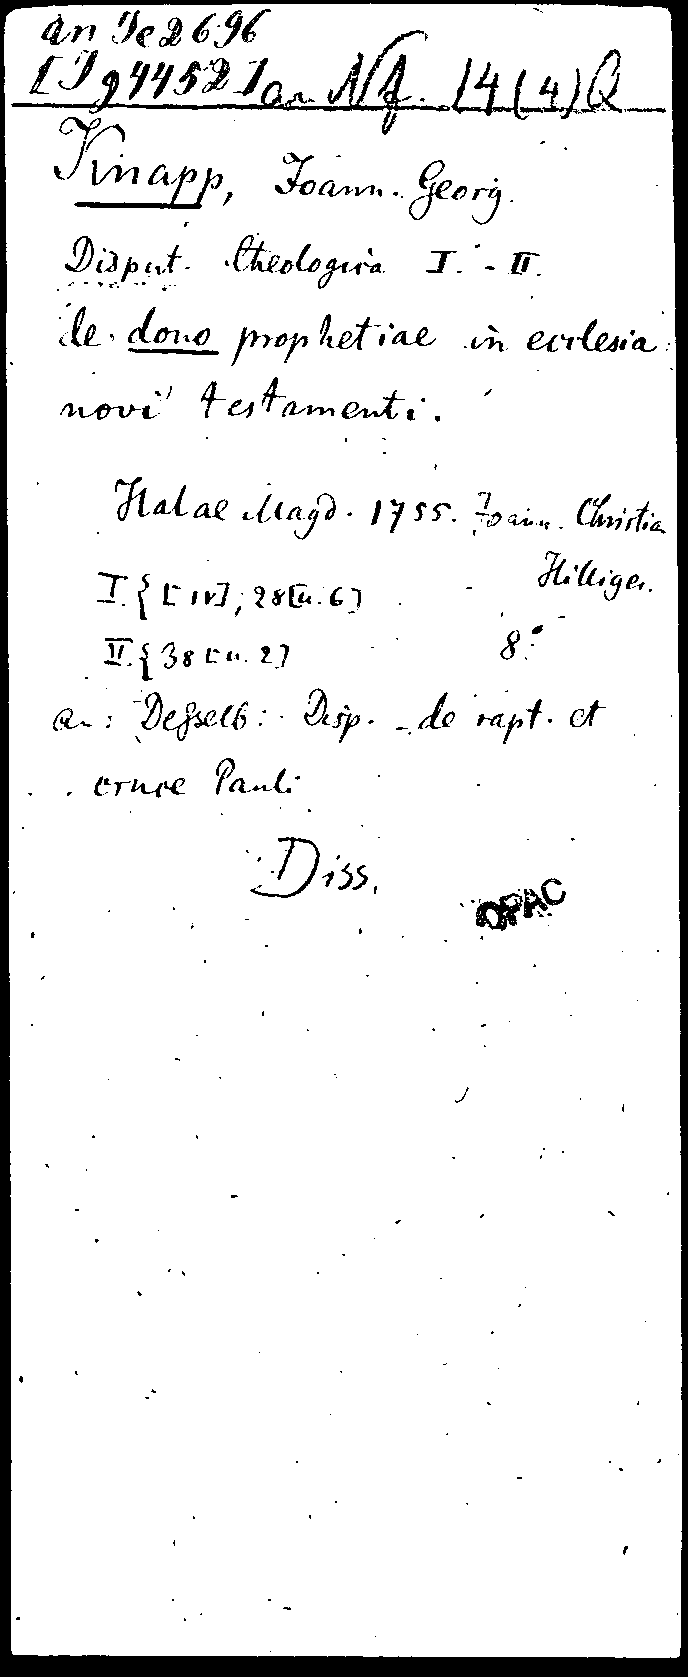 an Je 2696
[Jg 4452] an Nf. 14 (4) Q
Knapp, Joann. Georg.
Disput. theologica I. - II.
de dono prophetiae in ecclesia
novi testamenti.
Halae Magd. 1755. Joann. Christia
Hilliger.
I. { [IV], 28 [u. 6]
II. { 38 [u. 2]
8°
an: Desselb: Disp. - de rapt. et
cruce Pauli
Diss.
OPAC